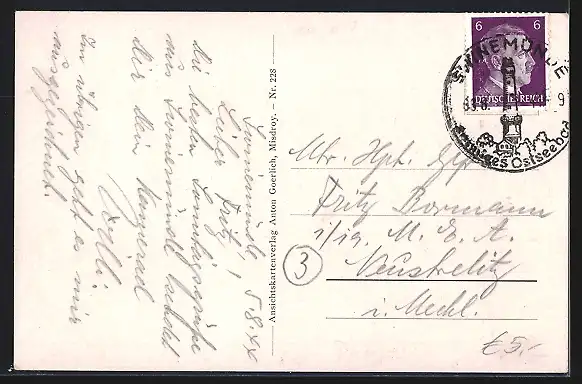 Swinemünde, 5.8.44
Lieber Fritz,
die besten Sonntagsgrüße
aus Swinemünde sendet
dir dein Kamerad
Willi.
Im übrigen geht es mir
ausgezeichnet.
Ansichtskartenverlag Anton Goerlich, Misdroy. – Nr. 228
6 6
DEUTSCHES REICH
SWINEMÜNDE
Ostseebad
Fritz Bormann
M. E. A.
Neustrelitz
i. Meckl.
3
€ 5,-